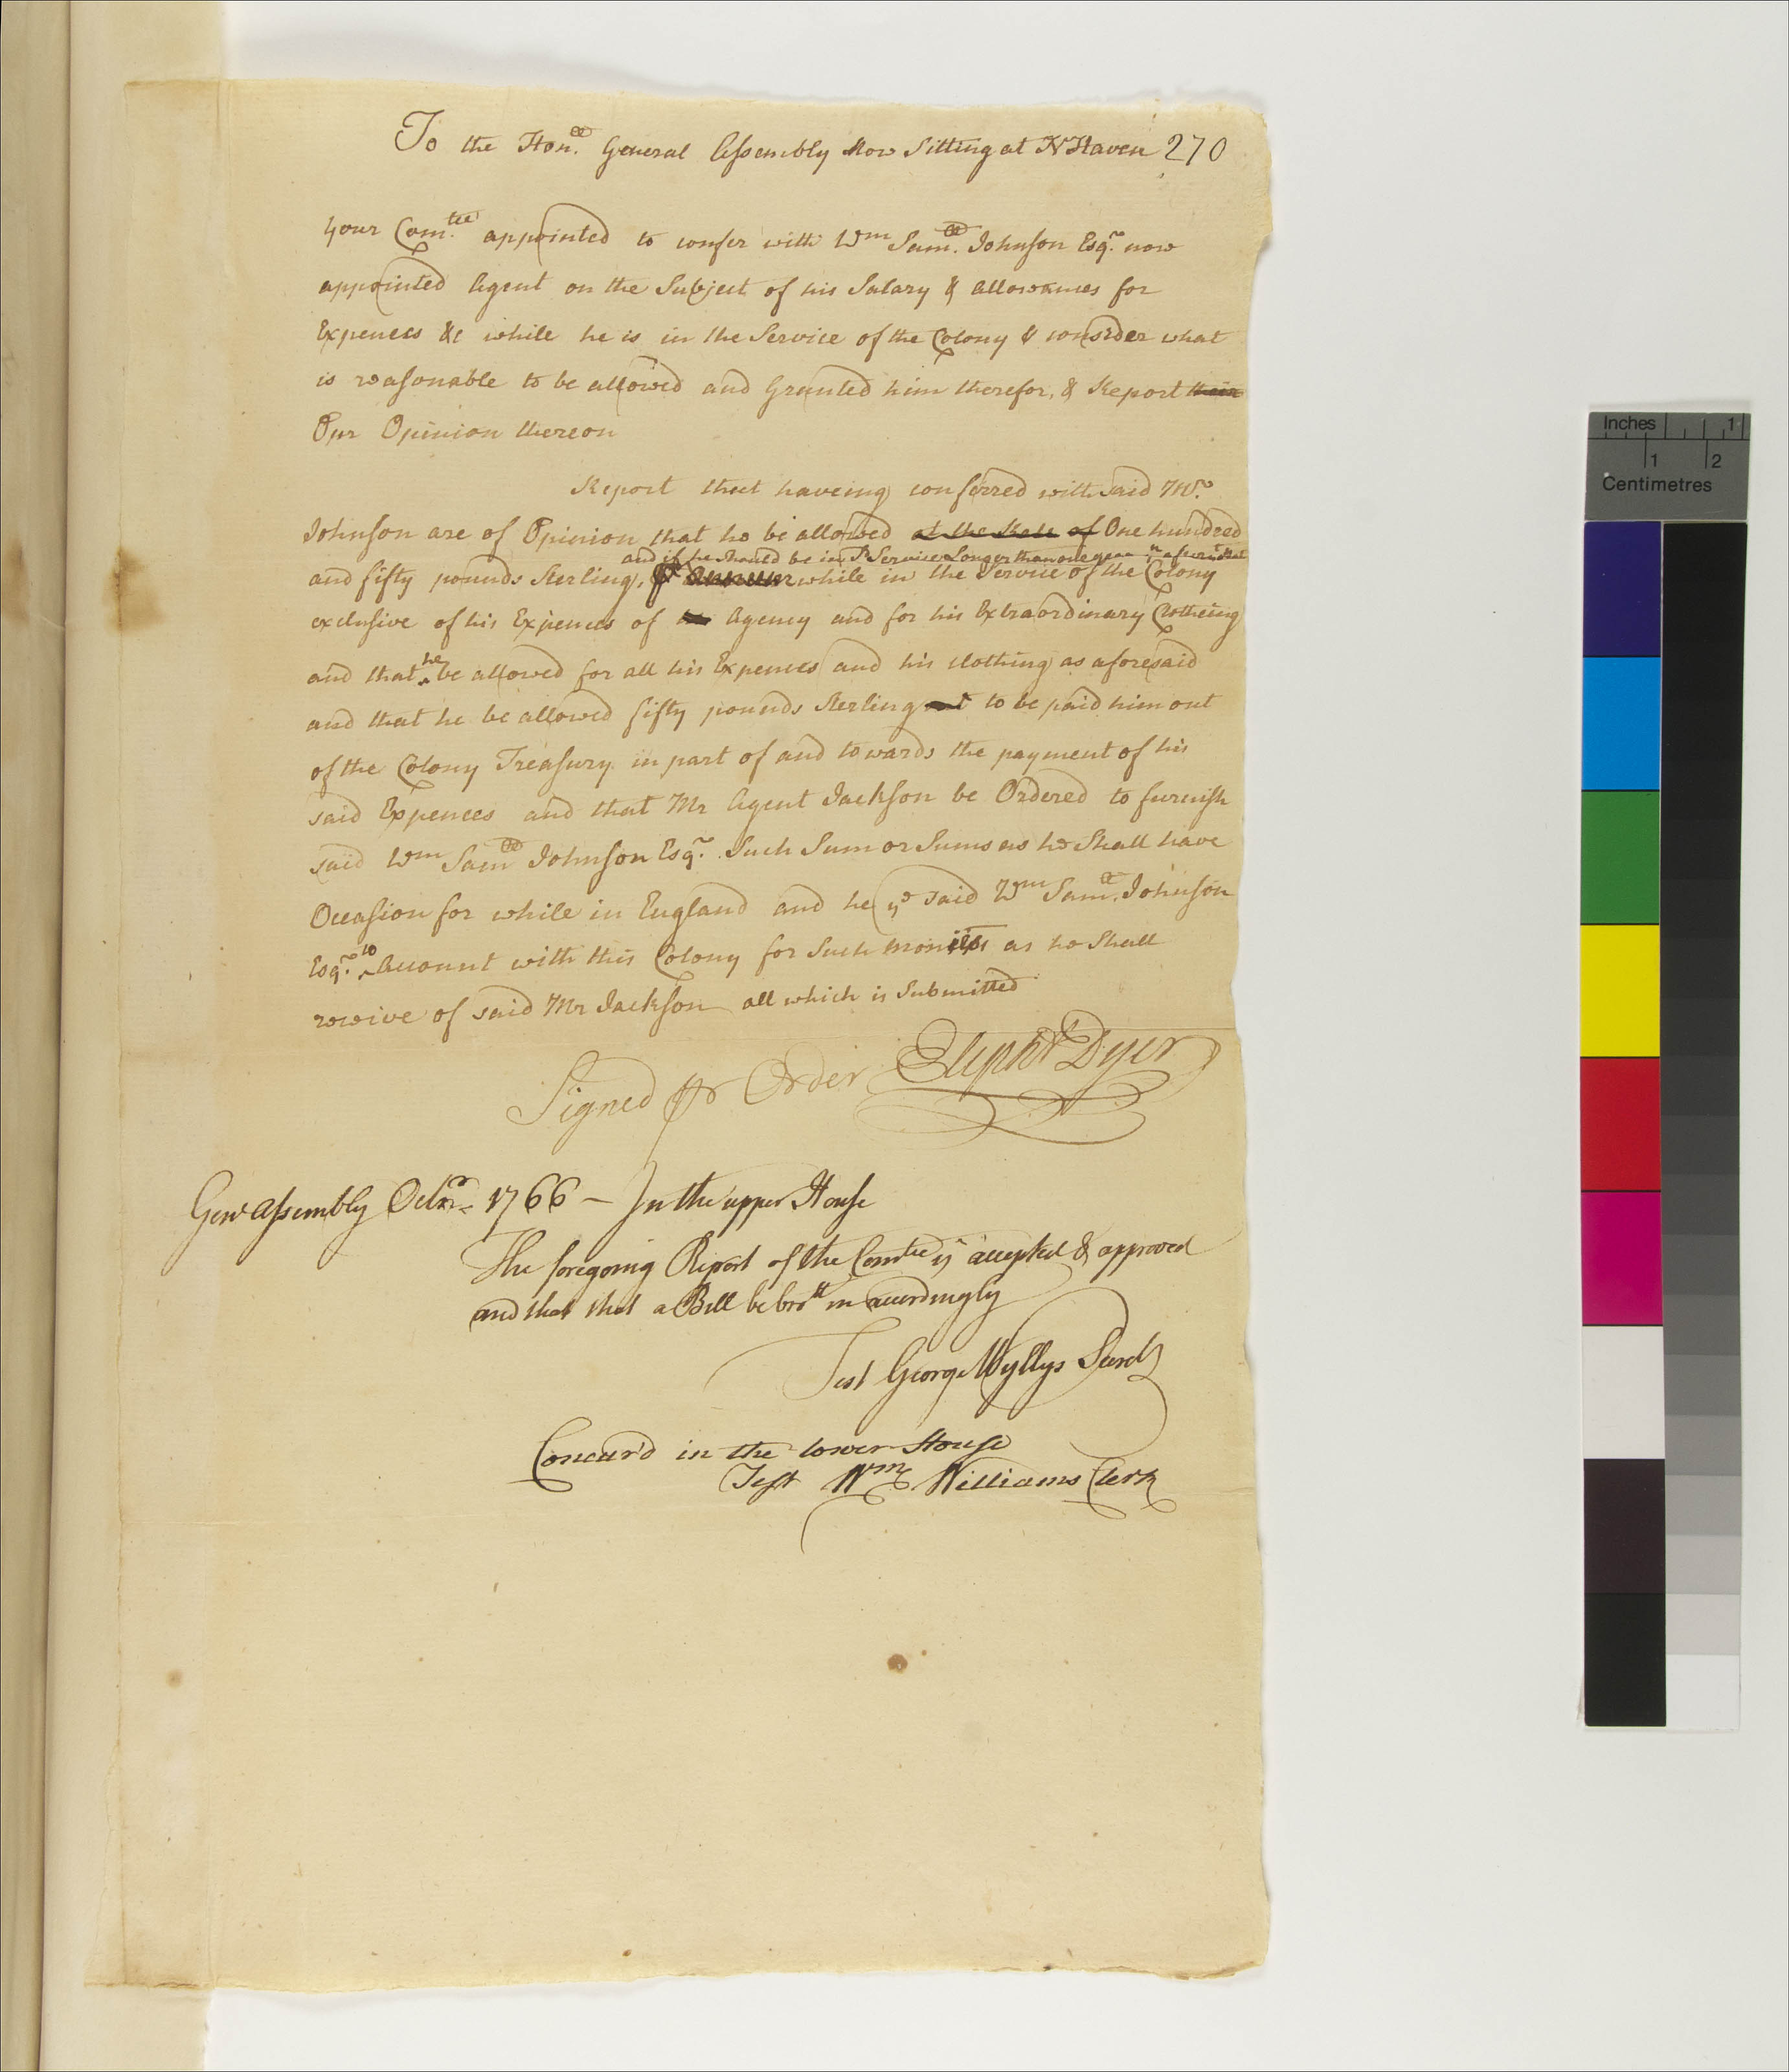 To the Hon.ble General Assembly Now Sitting at N Haven 270
Your Com.tee appointed to confer with Wm Sam.ll Johnson Esq.r now
appointed Agent on the Subject of his Salary & allowances for
Expences &c while he is in the Service of the Colony & consider what
is reasonable to be allowed and Granted him therefor, & Report their
Our Opinion thereon
Report that haveing conferred with said Mr.
Johnson are of Opinion that he be allowed at the Rate of One hundred
and if he Should be in sd Service Longer than one year yn after that
and fifty pounds Sterling, pr Annum while in the Service of the Colony
exclusive of his Expences of Agency and for his Extraordinary Clotheing
and that he be allowed for all his Expences and his clothing as aforesaid
and that he be allowed fifty pounds Sterling to be paid him out
of the Colony Treasury in part of and towards the payment of his
said Expences and that Mr Agent Jackson be Ordered to furnish
said Wm Samll Johnson Esq.r Such Sum or Sums as he Shall have
Occasion for while in England and he ye said Wm Sam.ll Johnson
Esq.r to Account with this Colony for Such monies as he Shall
receive of said Mr Jackson all which is Submitted
Signed pr Order Elipht Dyer
Genl Assembly Octr. 1766 – In the upper House
The foregoing Report of the Comtee is accepted & approved
and that that a Bill be brot in accordingly
Test George Wyllys Secrety
Concur'd in the lower House
Test Wm Williams Clerk
Inches 1
1 2
Centimetres